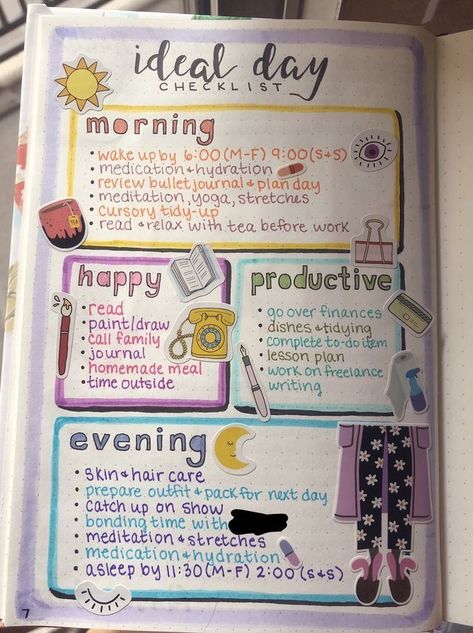 ideal day
CHECKLIST
morning
• wake up by 6:00 (M-F) 9:00 (S&S)
• medication & hydration
• review bullet journal & plan day
• meditation, yoga, stretches
• cursory tidy-up
• read & relax with tea before work
happy
• read
• paint/draw
• call family
• journal
• homemade meal
• time outside
productive
• go over finances
• dishes & tidying
• complete to-do item
• lesson plan
• work on freelance
writing
evening
• skin & hair care
• prepare outfit & pack for next day
• catch up on show
• bonding time with
• meditation & stretches
• medication & hydration
• asleep by 11:30 (M-F) 2:00 (S&S)
7